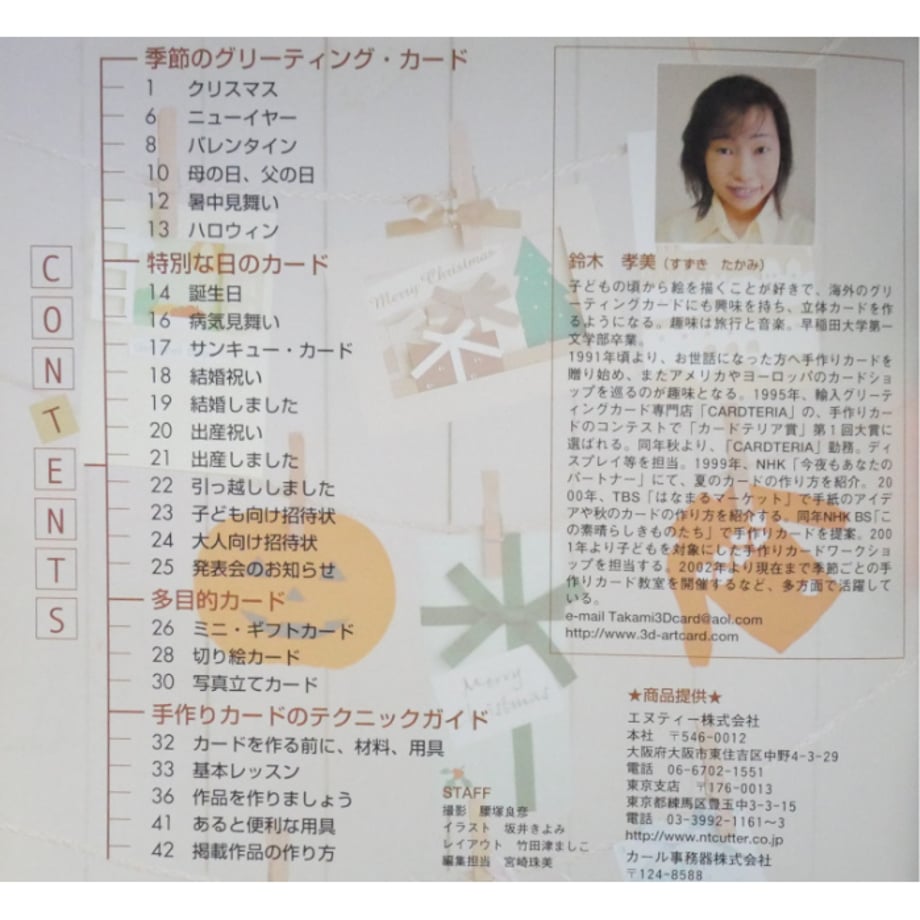 CONTENTS
季節のグリーティング・カード
1 クリスマス
6 ニューイヤー
8 バレンタイン
10 母の日、父の日
12 暑中見舞い
13 ハロウィン
特別な日のカード
14 誕生日
16 病気見舞い
17 サンキュー・カード
18 結婚祝い
19 結婚しました
20 出産祝い
21 出産しました
22 引っ越ししました
23 子ども向け招待状
24 大人向け招待状
25 発表会のお知らせ
多目的カード
26 ミニ・ギフトカード
28 切り絵カード
30 写真立てカード
手作りカードのテクニックガイド
32 カードを作る前に、材料、用具
33 基本レッスン
36 作品を作りましょう
41 あると便利な用具
42 掲載作品の作り方
Merry Christmas
Merry
Christmas
STAFF
撮影 腰塚良彦
イラスト 坂井きよみ
レイアウト 竹田津ましこ
編集担当 宮崎珠美
鈴木 孝美（すずき たかみ）
子どもの頃から絵を描くことが好きで、海外のグリ
ーティングカードにも興味を持ち、立体カードを作
るようになる。趣味は旅行と音楽。早稲田大学第一
文学部卒業。
1991年頃より、お世話になった方へ手作りカードを
贈り始め、またアメリカやヨーロッパのカードショ
ップを巡るのが趣味となる。1995年、輸入グリーテ
ィングカード専門店「CARDTERIA」の、手作りカー
ドのコンテストで「カードテリア賞」第1回大賞に
選ばれる。同年秋より、「CARDTERIA」勤務。ディ
スプレイ等を担当。1999年、NHK「今夜もあなたの
パートナー」にて、夏のカードの作り方を紹介。20
00年、TBS「はなまるマーケット」で手紙のアイデ
アや秋のカードの作り方を紹介する。同年NHK BS「こ
の素晴らしきものたち」で手作りカードを提案。200
1年より子どもを対象にした手作りカードワークショ
ップを担当する。2002年より現在まで季節ごとの手
作りカード教室を開催するなど、多方面で活躍して
いる。
e-mail Takami3Dcard@aol.com
http://www.3d-artcard.com
★商品提供★
エヌティー株式会社
本社 〒546-0012
大阪府大阪市東住吉区中野4-3-29
電話 06-6702-1551
東京支店 〒176-0013
東京都練馬区豊玉中3-3-15
電話 03-3992-1161～3
http://www.ntcutter.co.jp
カール事務器株式会社
〒124-8588